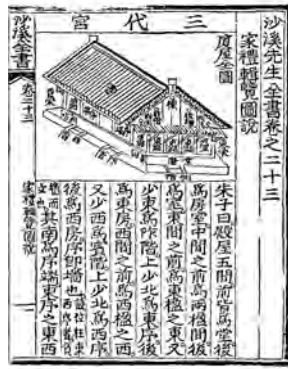 沙溪先生全書卷之二十三
家禮輯覽圖說
三代宮
廈屋全圖
朱子曰殿屋五間前皆爲堂後
爲房室中間之前爲兩楹間後
爲室東間之前爲東楹之東又
少東爲阼階上少北爲東序後
爲東房西間之前爲西楹之西
又少西爲賓階上少北爲西序
後爲西房序卽墻也
其南爲序端東序之東西
沙溪全書
卷二十三
家禮輯覽圖說